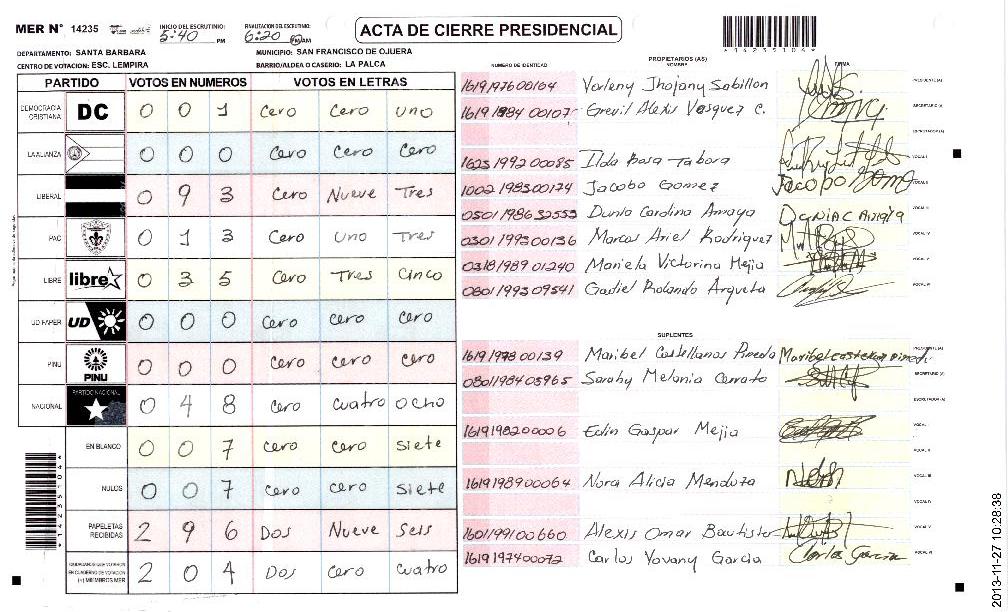 MER N° 14235
INICIO DEL ESCRUTINIO:
5:40 PM
FINALIZACION DEL ESCRUTINIO:
6:20 PM
ACTA DE CIERRE PRESIDENCIAL
*14235106*
DEPARTAMENTO: SANTA BARBARA
MUNICIPIO: SAN FRANCISCO DE OJUERA
CENTRO DE VOTACION: ESC. LEMPIRA
BARRIO/ALDEA O CASERIO: LA PALCA
PARTIDO VOTOS EN NUMEROS VOTOS EN LETRAS
DEMOCRACIA CRISTIANA DC 0 0 1 Cero Cero Uno
LA ALIANZA 0 0 0 Cero Cero Cero
LIBERAL 0 9 3 Cero Nueve Tres
PAC 0 1 3 Cero Uno Tres
LIBRE libre 0 3 5 Cero Tres Cinco
UD FAPER UD 0 0 0 Cero Cero Cero
PINU PINU 0 0 0 Cero Cero Cero
NACIONAL PARTIDO NACIONAL 0 4 8 Cero Cuatro Ocho
EN BLANCO 0 0 7 Cero Cero Siete
NULOS 0 0 7 Cero Cero Siete
PAPELETAS RECIBIDAS 2 9 6 Dos Nueve Seis
CIUDADANOS QUE VOTARON EN CUADERNO DE VOTACION (+) MIEMBROS MER 2 0 4 Dos Cero Cuatro
*14235104*
PROPIETARIOS (AS)
NUMERO DE IDENTIDAD NOMBRE FIRMA
1619197600164 Yorleny Jhojany Sabillon PRESIDENTE(A)
1619198400107 Grevil Alexis Vasquez C. SECRETARIO (A)
ESCRUTADOR (A)
1623199200085 Ilda Rosa Tabora VOCAL I
1002198300174 Jacobo Gomez Jacobo Gomez VOCAL II
0501198632553 Dunia Carolina Amaya VOCAL III
0301199300136 Marcos Ariel Rodriguez VOCAL IV
0318198901240 Mariela Victorina Mejia VOCAL V
0801199309541 Gadiel Rolando Argueta VOCAL VI
SUPLENTES
1619197800139 Maribel Castellanos Pineda Maribel Castellanos Pineda PRESIDENTE (A)
0801198405965 Sarahy Melania Cerrato SECRETARIO (A)
ESCRUTADOR (A)
1619198200006 Edin Gaspar Mejia VOCAL I
VOCAL II
1619198900064 Nora Alicia Mendoza VOCAL III
VOCAL IV
1601199100660 Alexis Omar Bautista VOCAL V
1619197400072 Carlos Yovany Garcia Carlos Garcia VOCAL VI
2013-11-27 10:28:38